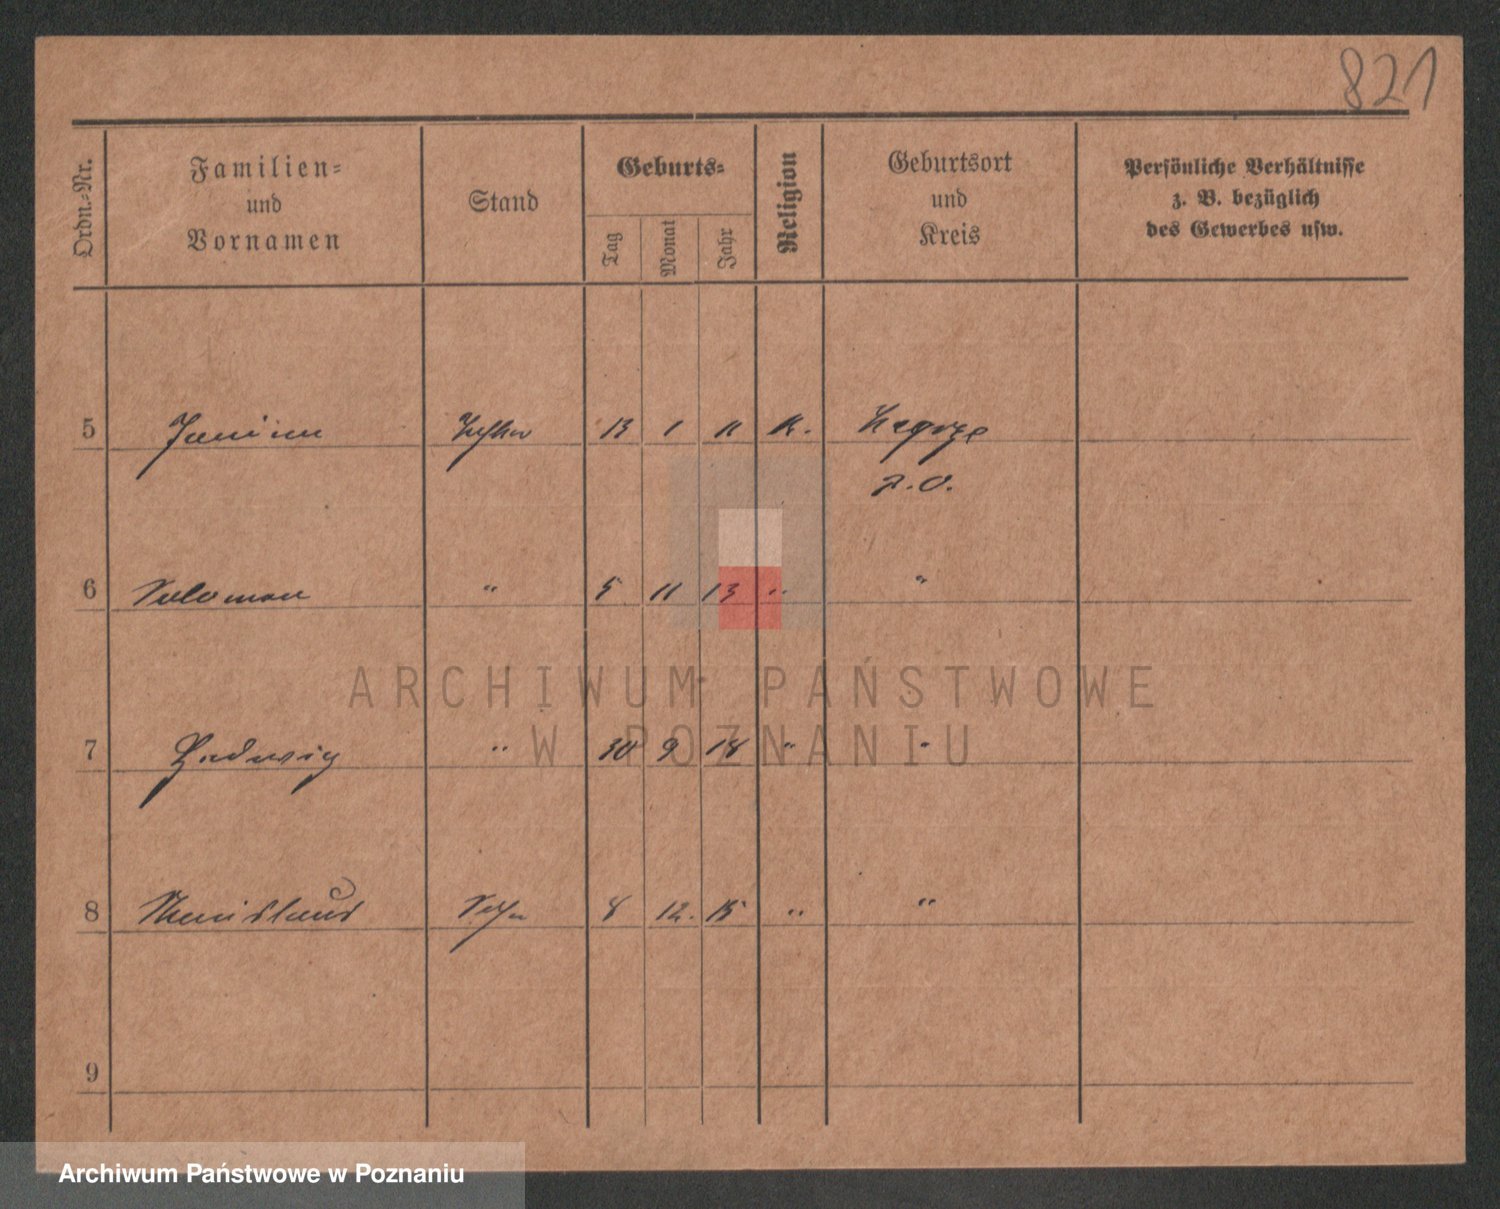 821
Ordn.-Nr.
Familien-
und
Vornamen
Stand
Geburts-
Tag
Monat
Jahr
Religion
Geburtsort
und
Kreis
Persönliche Verhältnisse
z. B. bezüglich
des Gewerbes usw.
5 Janina 13 1 11 K.
P.O.
6 " 5 11 13 " "
7 Hedwig " 30 9 14 " "
8 Stanislaus Sohn 8 12. 15 " "
9
ARCHIWUM PAŃSTWOWE
W POZNANIU
Archiwum Państwowe w Poznaniu